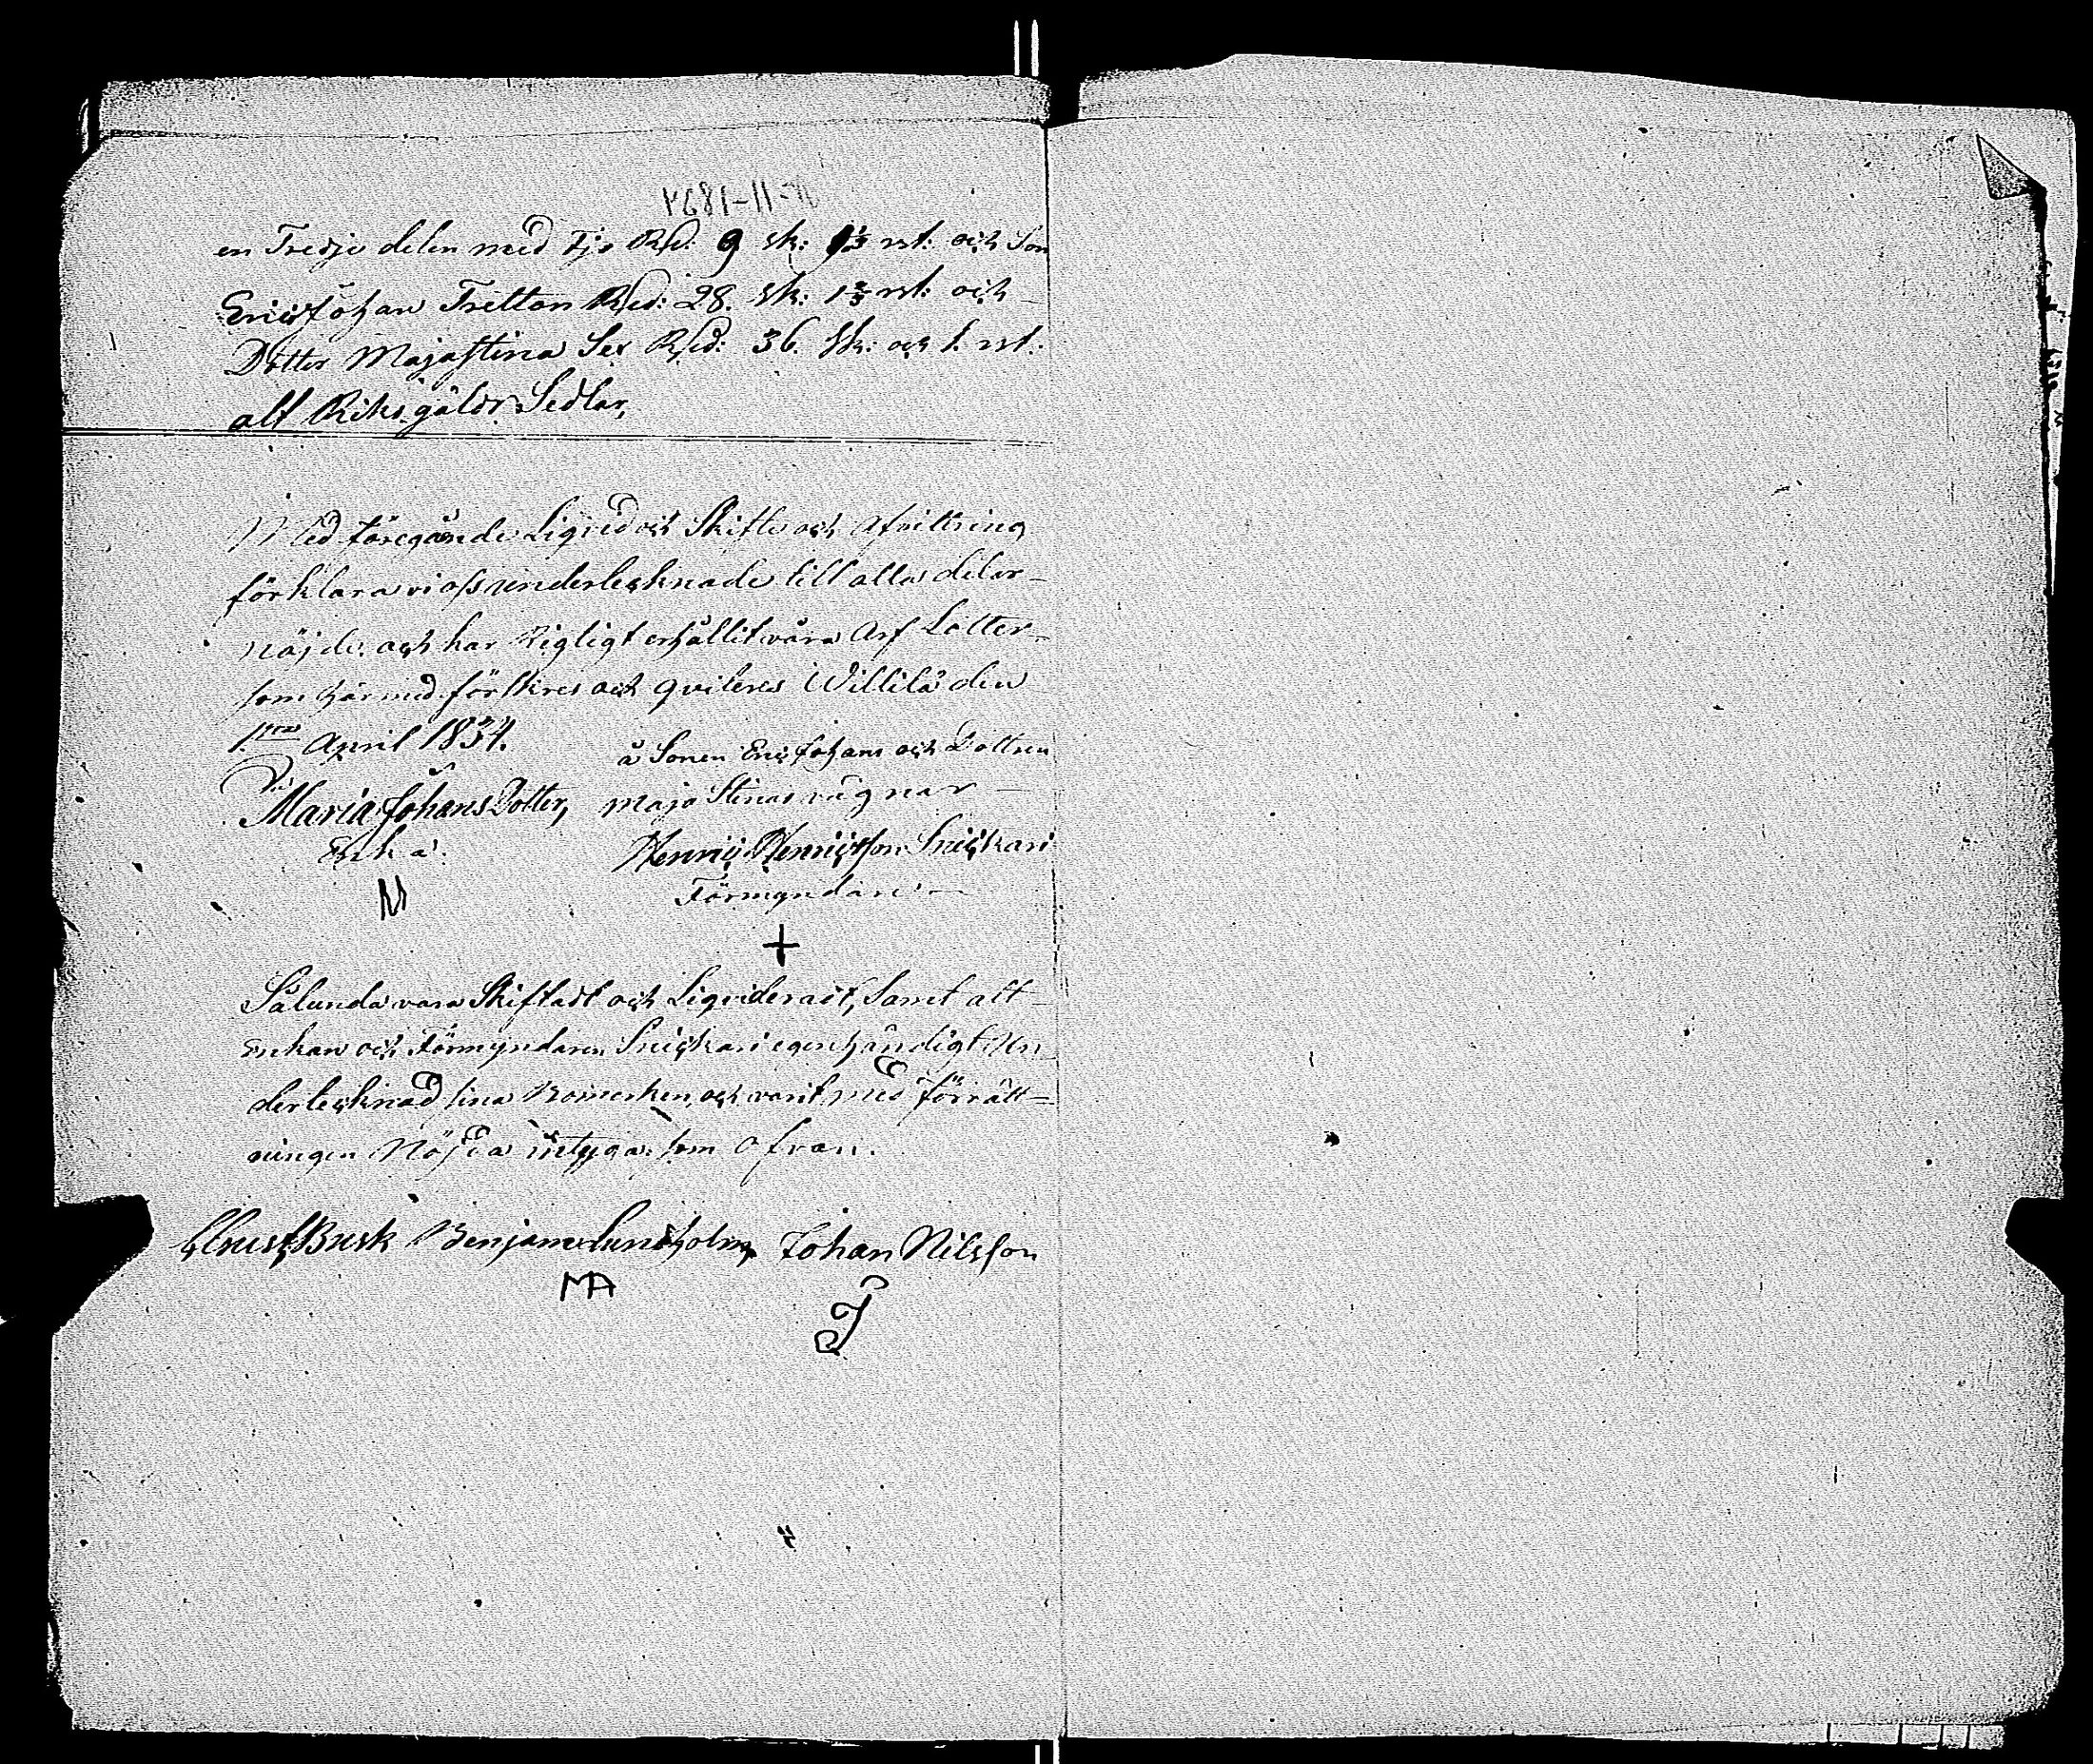 en Tredje delen med Tjo Rd: 9 sk: 1⅓ rst: och Son
Eric Johan Tretton Rd: 28. sk: 1⅔ rst: och
Dotter Maja Stina Sex Rd: 36. sk: och 1. rst:
alt Riksgälds Sedlar,
Med föregående Liqvid och Skifte och Afvittring
förklara vi oss undertecknade till alla delar
nöjde och har Rigtigt erhållit våra Arf Lotter
som härmed försäkres och qviteres Willilä den
1.sta April 1834.
å Sonen Eric Johans och Dottren
Maja Stinas vägnar
Maria Johans Dotter,
Enka.
Henric Henricsson Snickari
Förmyndare
Sålunda vara Skiftadt och Liqvideradt, Samt att
Enkan och Förmyndaren Snickari egenhändigt Un
dertecknad sina Bomerken, och varit med Förrätt=
ningen Nöjda intygar som ofvan.
Gust Busk Benjam Lundholm Johan Nilsson
MA
J